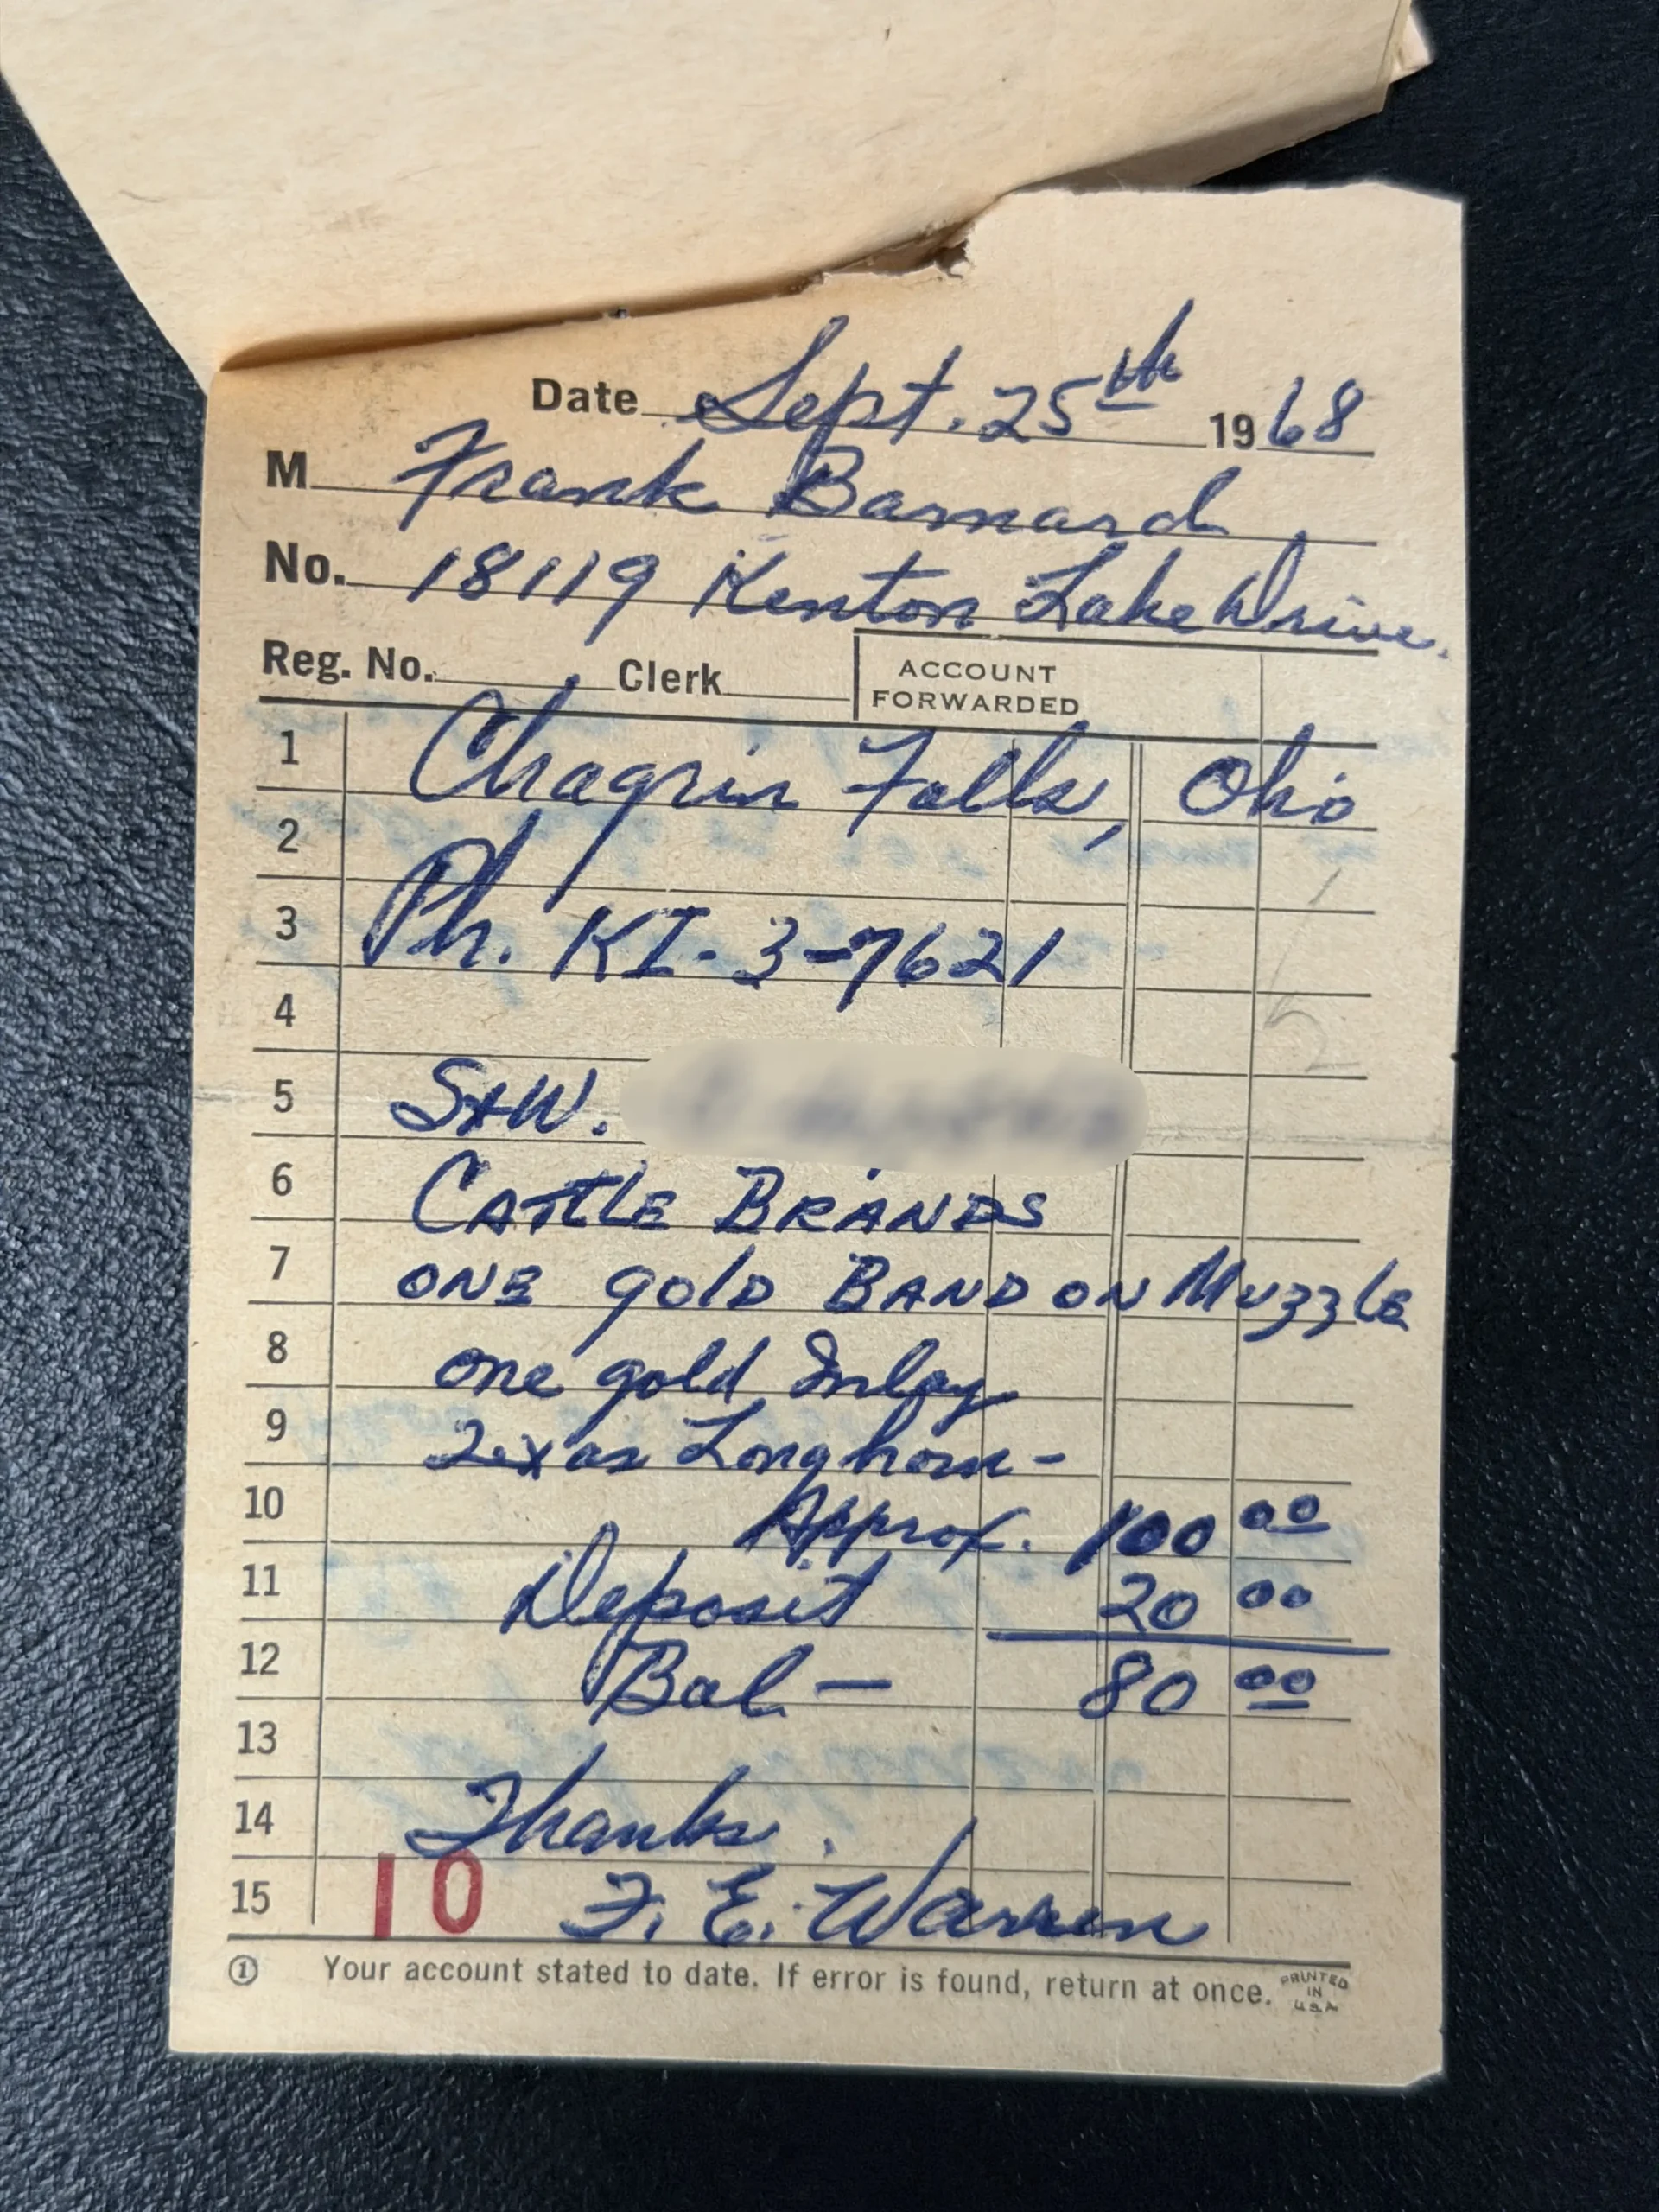 Date Sept. 25th 1968
M Frank Barnard
No. 18119 Kenton Lake Drive.
Reg. No. Clerk ACCOUNT FORWARDED
1 Chagrin Falls, Ohio
2
3 Ph. KI-3-7621
4
5 S&W.
6 CATTLE BRANDS
7 ONE gOLD BAND ON MUZZLE
8 one gold Inlay
9 Texas Longhorn -
10 Approx. 100 00
11 Deposit 20 00
12 Bal - 80 00
13
14 Thanks.
15 10 F. E. Warren
① Your account stated to date. If error is found, return at once. PRINTED IN U.S.A.